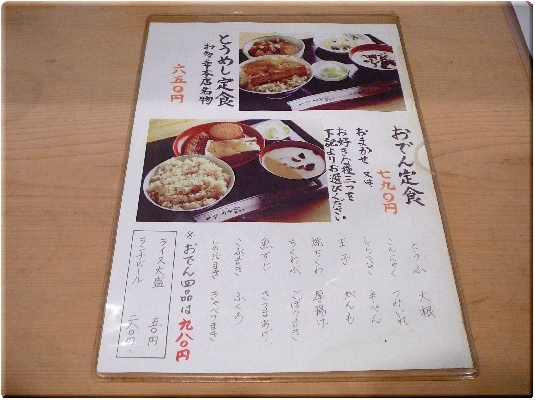 おでん定食
七九〇円
おまかせ 又は
お好きな種三つを
下記よりお選びください
とうめし定食
お多幸本店名物
六五〇円
とうふ 大根
こんにゃく つみいれ
しらたき 半ぺん
玉子 がんも
焼ちくわ 厚揚げ
ちくわぶ ごぼう巻き
魚すじ さつまあげ
こぶまき ふくろ
いのだまき きゃべつまき
※おでん四品は九八〇円
ライス大盛 五〇円
ランチビール 二八〇円